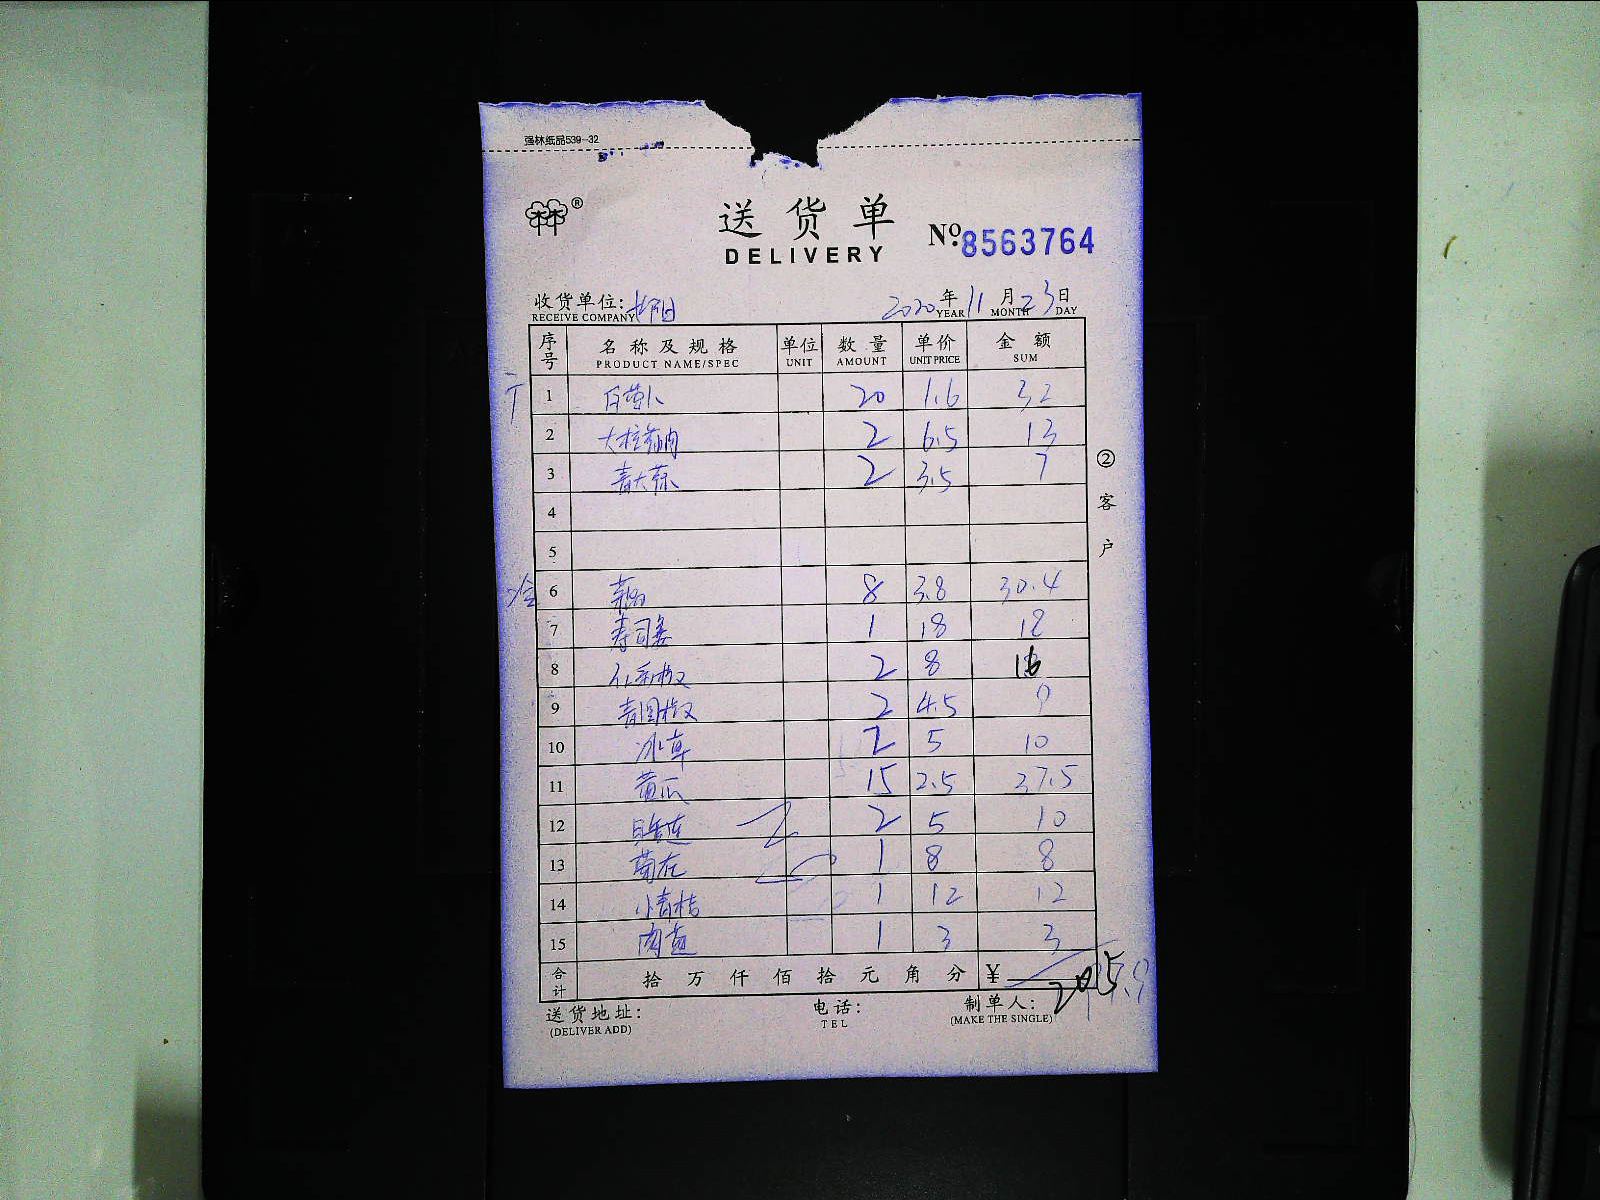 强林纸品539-32
®
送货单
DELIVERY
Nº.8563764
收货单位:
RECEIVE COMPANY
2020年11月23日
YEAR MONTH DAY
序号 名称及规格 单位 数量 单价 金额
PRODUCT NAME/SPEC UNIT AMOUNT UNIT PRICE SUM
1 白萝卜 20 1.6 32
2 2 6.5 13
3 青大蒜 2 3.5 7
4
5
6 8 3.8 30.4
7 寿司姜 1 18 18
8 2 8 16
9 青圆椒 2 4.5 9
10 冰草 2 5 10
11 黄瓜 15 2.5 37.5
12 2 5 10
13 菊花 1 8 8
14 小青桔 1 12 12
15 1 3 3
合计 拾万仟佰拾元角分 ¥
送货地址: 电话: 制单人:
(DELIVER ADD) TEL (MAKE THE SINGLE)
②客户